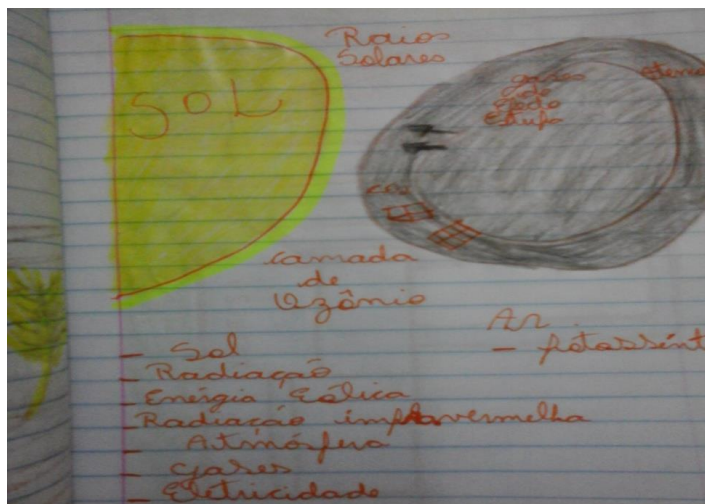 SOL
Raios
Solares
gases
do
efeito
Estufa
CO2
camada
de
Ozônio
Ar
- fotossínt
- Sol
- Radiação
- Enérgia Eólica
- Radiação infravermelha
- Atmósfera
- gases
- Eletricidade